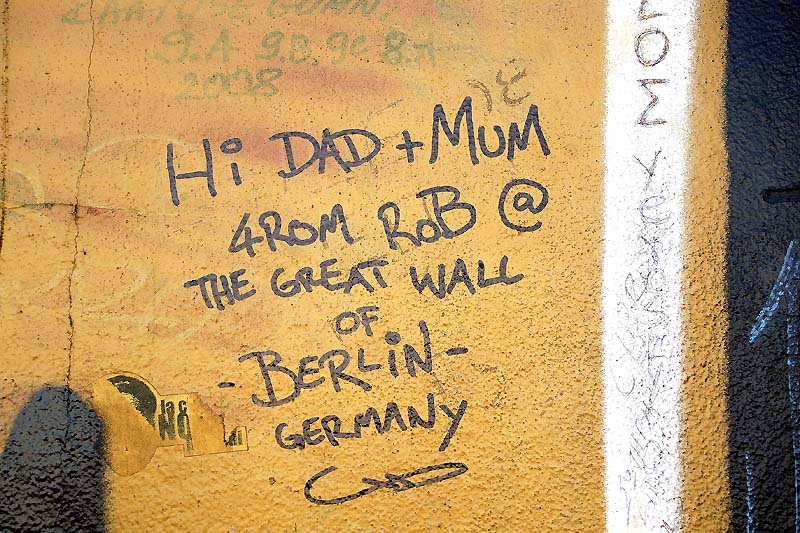 9.A 9.B. 9C 8.A
2008
Hi DAD + MUM
4ROM ROB @
THE GREAT WALL
OF
- BERLIN -
GERMANY
MOR